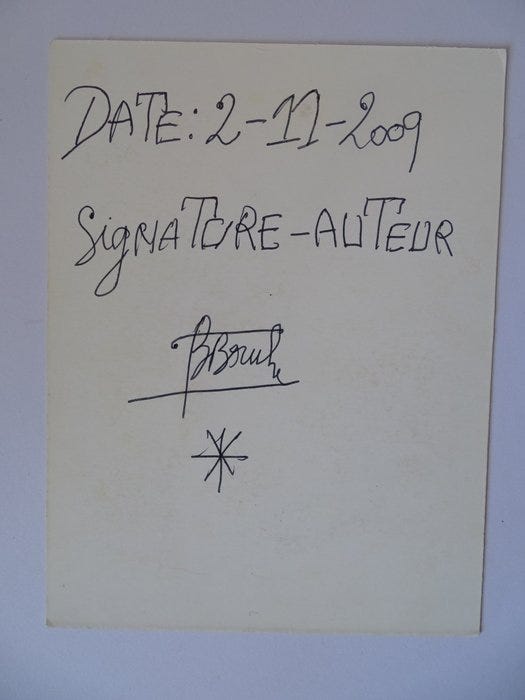 DATE: 2-11-2009
SIGNATURE-AUTEUR